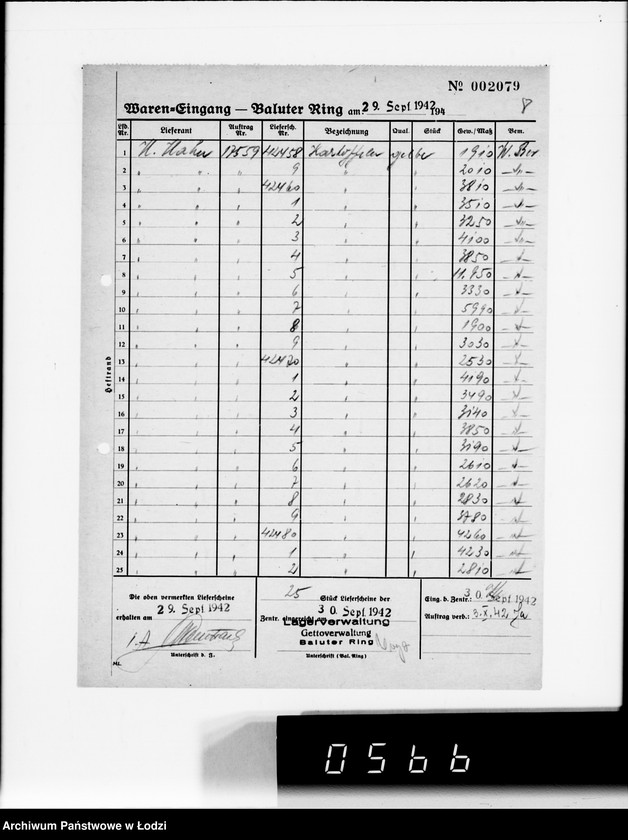 № 002079
Waren=Eingang — Baluter Ring am 29. Sept 1942 194
8
Lfd. Nr. Lieferant Auftrag Nr. Liefersch. Nr. Bezeichnung Qual. Stück Gew./Maß Bem.
1 H. Hahn 17559 42458 Kartoffeln gelbe 1910
2 " " " 9 " 2010
3 " " " 42460 " 3810
4 " " " 1 " 3510
5 " " " 2 " 3250
6 " " " 3 " 4100
7 " " " 4 " 3850
8 " " " 5 " 11.950
9 " " " 6 " 3330
10 " " " 7 " 5990
11 " " " 8 " 1900
12 " " " 9 " 3030
13 " " " 42470 " 2530
14 " " " 1 " 4190
15 " " " 2 " 3490
16 " " " 3 " 3140
17 " " " 4 " 3850
18 " " " 5 " 3190
19 " " " 6 " 2610
20 " " " 7 " 2620
21 " " " 8 " 2830
22 " " " 9 " 3780
23 " " " 42480 " 4260
24 " " " 1 " 4230
25 " " " 2 " 2810
Heftrand
Die oben vermerkten Lieferscheine
erhalten am 29. Sept 1942
i.A
Unterschrift d. J.
25 Stück Lieferscheine der
Zentr. eingereicht am 30. Sept. 1942
Lagerverwaltung
Gettoverwaltung
Baluter Ring
Unterschrift (Bal. Ring)
Eing. b. Zentr.: 30. Sept. 1942
Auftrag verb.: 3.X.42
0566
Archiwum Państwowe w Łodzi